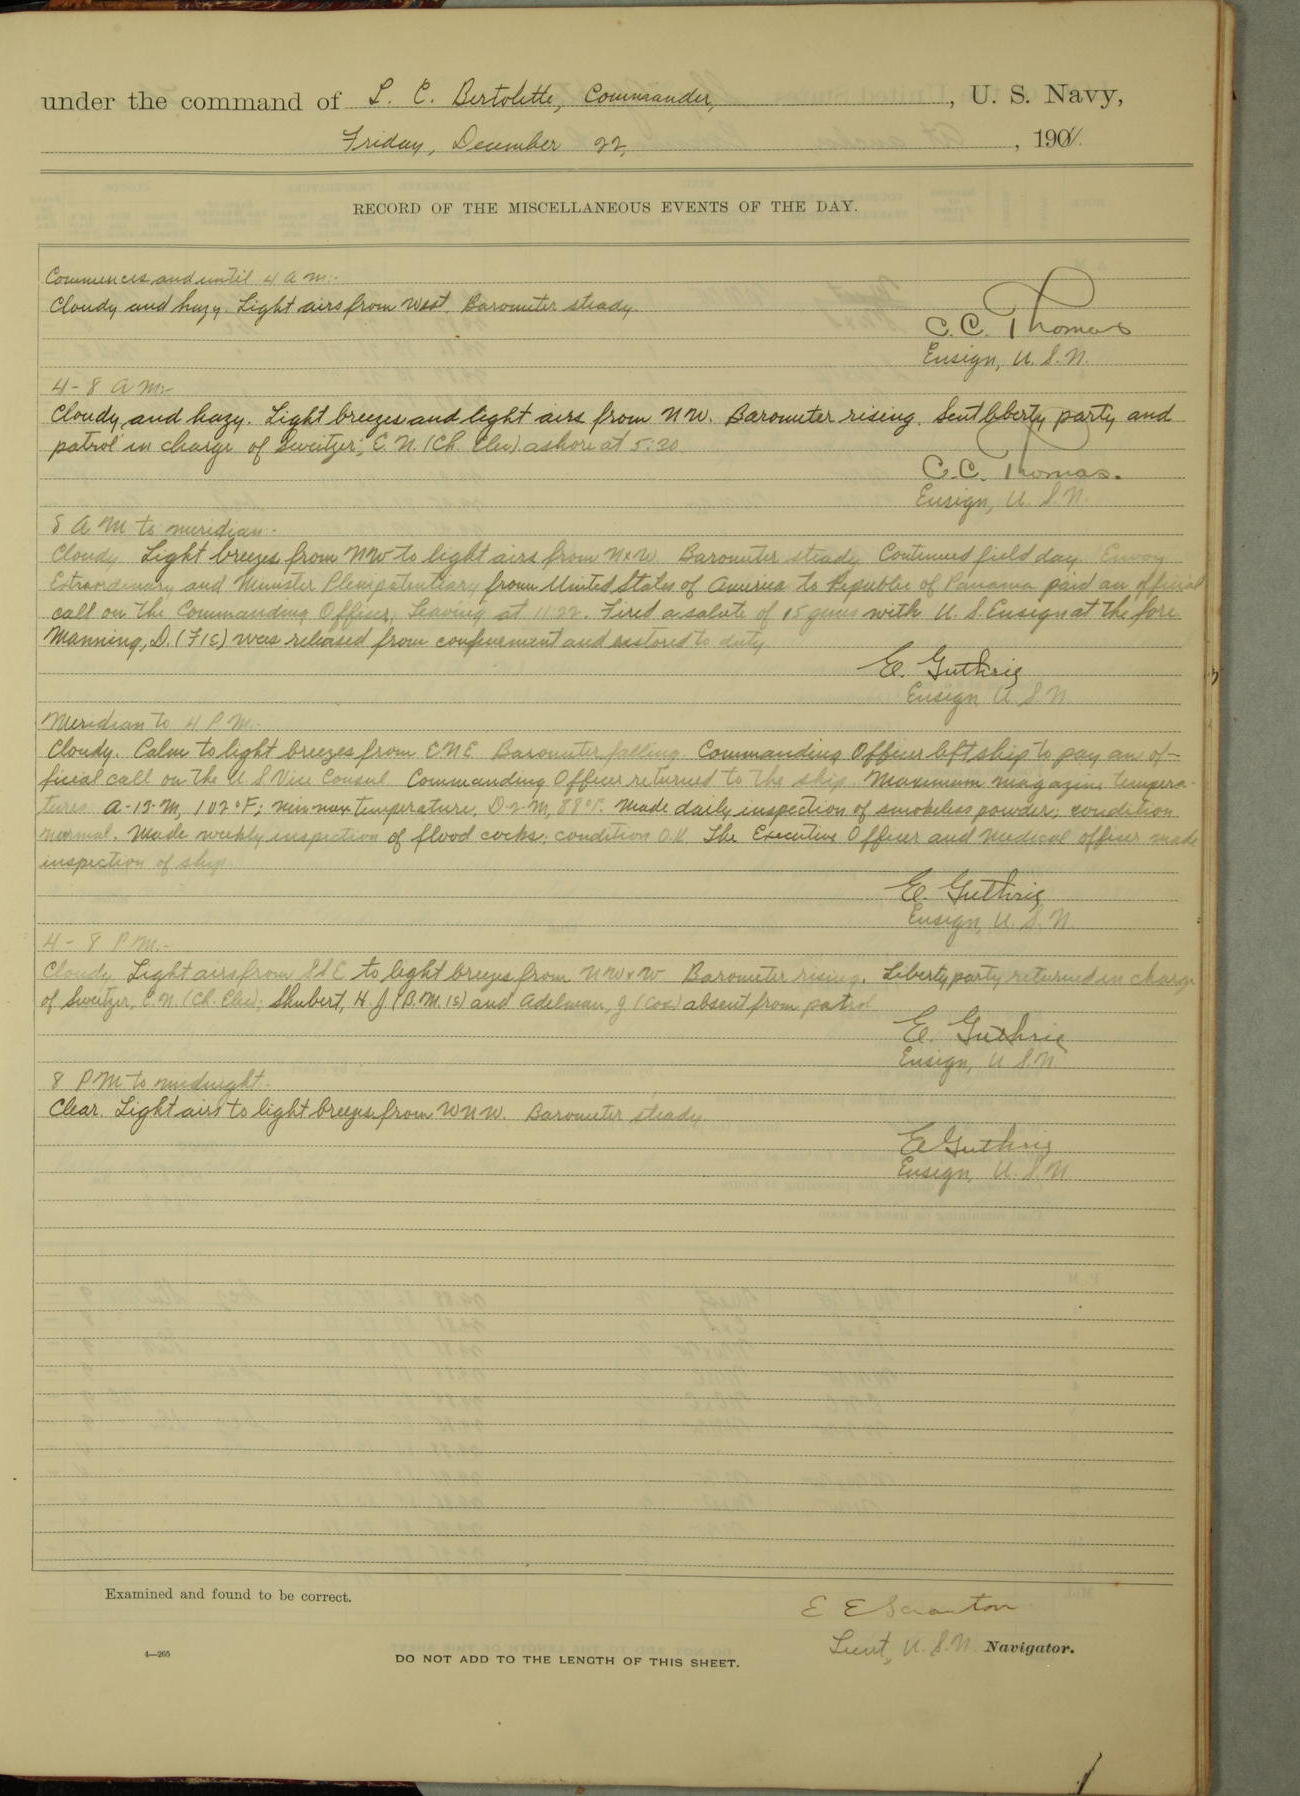 under the command of L. C. Bertolette, Commander, , U. S. Navy,
Friday, December 22, , 190
RECORD OF THE MISCELLANEOUS EVENTS OF THE DAY.
Commences and until 4 A m:-
Cloudy and hazy. Light airs from West. Barometer steady.
C. C. Thomas
Ensign, U. S. N.
4-8 A m:-
Cloudy and hazy. Light breezes and light airs from NW. Barometer rising. Sent liberty party and
patrol in charge of Sweitzer, C. N. (Ch. Elec). ashore at 5:20
C. C. Thomas.
Ensign, U. S. N.
8 A M to meridian:-
Cloudy Light breezes from NW to light airs from NxW Barometer steady Continued field day. Envoy
Extraordinary and Minister Plenipotentiary from United States of America to Republic of Panama paid an official
call on the Commanding Officer, leaving at 11:22. Fired a salute of 15 guns with U. S. Ensign at the fore
Manning, D. (F1c) was released from confinement and restored to duty
E. Guthrie
Ensign U. S. N.
Meridian to 4 P M:-
Cloudy. Calm to light breezes from ENE Barometer falling. Commanding Officer left ship to pay an of-
ficial call on the U. S Vice Consul Commanding Officer returned to the ship. Maximum magazine tempera-
tures A-12-M, 102°F; temperature, D-2-M, 88°F. Made daily inspection of smokeless powder, condition
normal. Made weekly inspection of flood cocks, condition O.K. The Executive Officer and Medical officer made
inspection of ship.
E. Guthrie
Ensign, U. S. N.
4- 8 P M:-
Cloudy Light airs from SSE to light breezes from NWxW Barometer rising. Liberty party returned in charge
of Sweitzer, C. N. (Ch. Elec); Shubert, H. J (B. M. 1c) and Adelman, J (Cox) absent from patrol
E. Guthrie
Ensign, U. S. N.
8 P M to midnight:-
Clear. Light airs to light breezes from WNW. Barometer steady.
E Guthrie
Ensign, U. S. N
Examined and found to be correct.
E E Scranton
Lieut, U. S. N. Navigator.
4—265
DO NOT ADD TO THE LENGTH OF THIS SHEET.